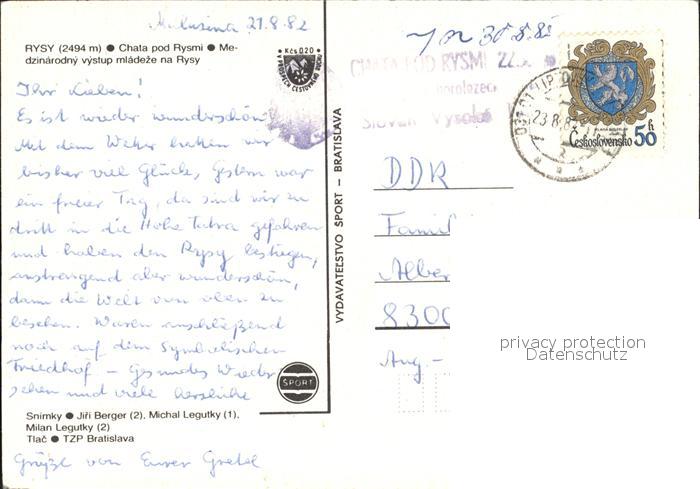 Malusina 21.8.82
RYSY (2494 m) ● Chata pod Rysmi ● Me-
dzinárodný výstup mládeže na Rysy
Kčs 0,20
Ihr Lieben!
Es ist wieder wunderschön!
Mit dem Wetter hatten wir
bisher viel Glück, Gestern war
ein freier Tag, da sind wir zu
dritt in die Hohe Tatra gefahren
und haben den Rysy bestiegen,
anstrengend aber wunderschön,
dann die Welt von oben zu
besehen. Waren anschließend
noch auf dem Symbolischen
Friedhof – Gesundes Wieder-
sehen und viele herzliche
ŠPORT
Snímky ● Jiří Berger (2), Michal Legutky (1),
Milan Legutky (2)
Tlač ● TZP Bratislava
Grüße von Eurer Gretel
VYDAVATEĽSTVO ŠPORT – BRATISLAVA
30.8.82
CHATA POD RYSMI 22
horolezec
Vysoké
23.8.8
Československo 50 h
DDR
Famil
Alber
8300
privacy protection
Datenschutz